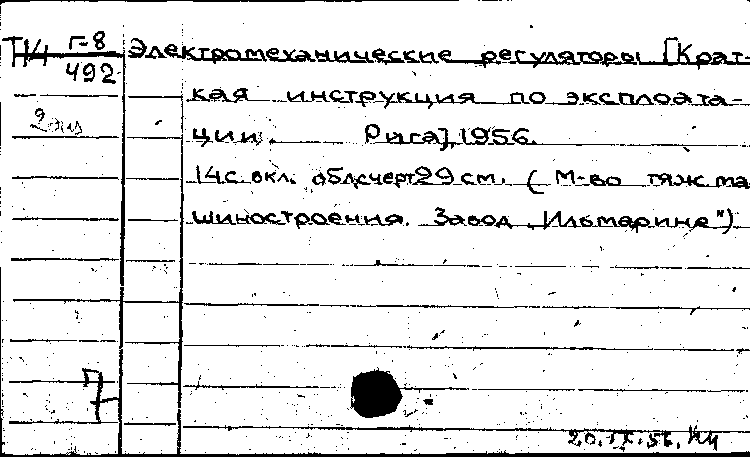 Т14 Г-8 Электромеханические регуляторы [Крат-
492
кая инструкция по эксплоата-
2 экз
ции. Рига], 1956.
14 с. вкл. обл с черт 29 см. (М-во тяж. ма
шиностроения. Завод "Ильмарине")
7
20.IX.56.